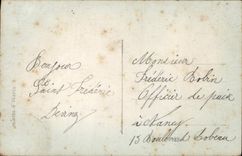 Bonjour
Saint Frédéric
Monsieur
Frédéric Robin
Officier de paix
à Nancy
13 Boulevard Lobau